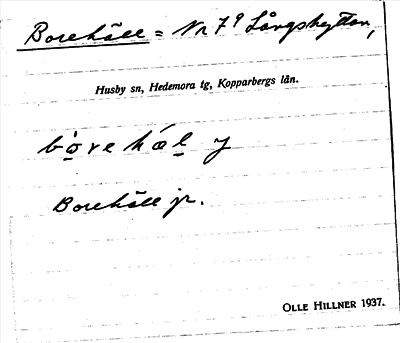 Borehäll = Nr 7⁹ Långshyttan,
Husby sn, Hedemora tg, Kopparbergs län.
Borehäll jr.
OLLE HILLNER 1937.